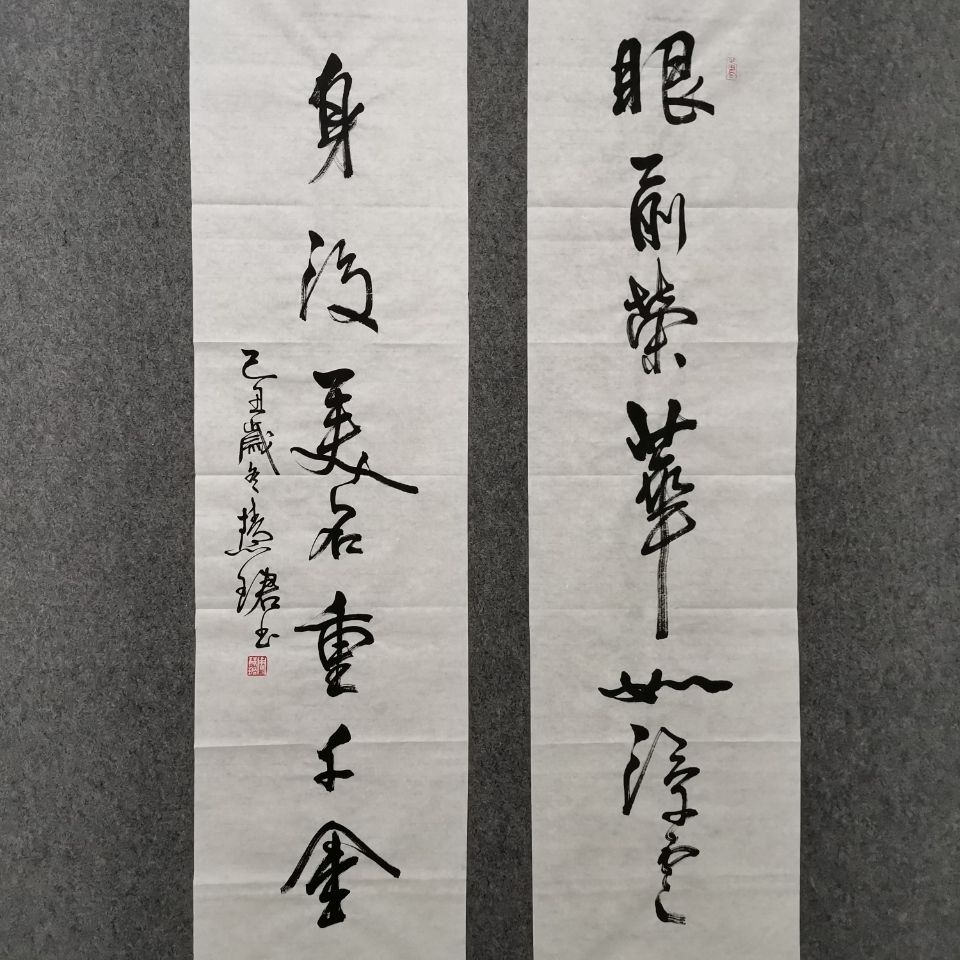 眼前榮華如浮雲
身後美名重千金
己丑歲冬慧珺書